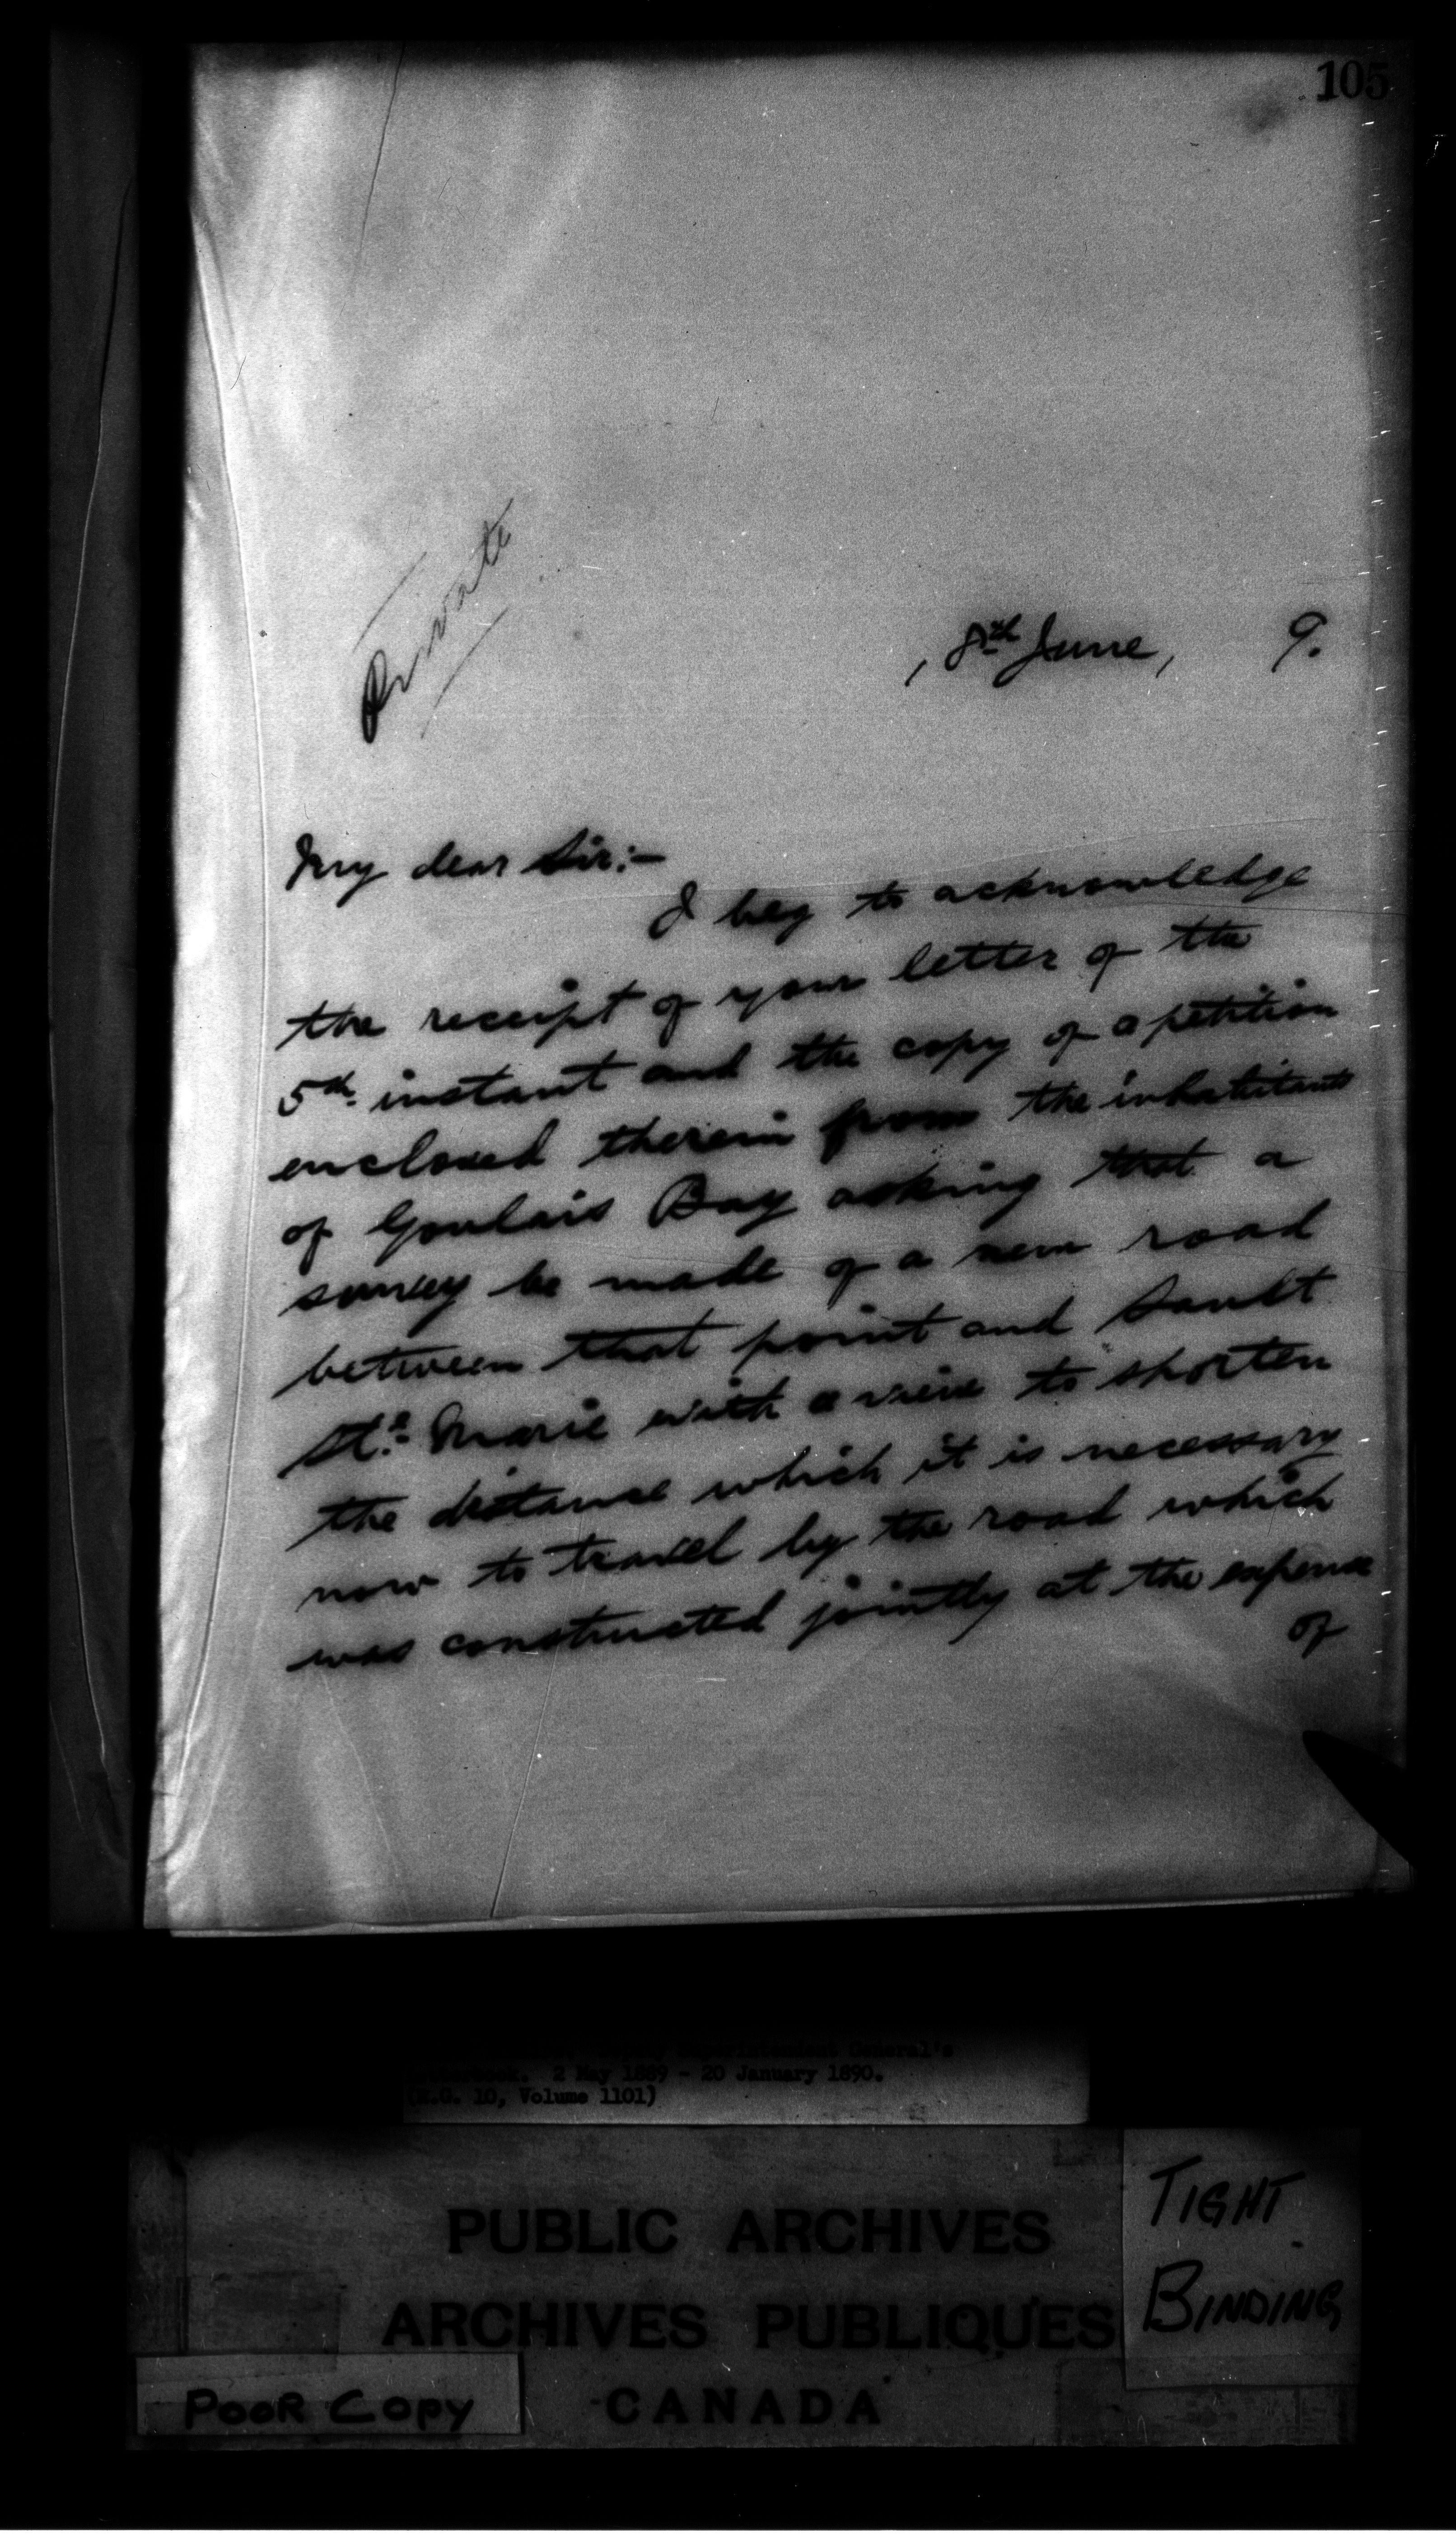 105
Private
, 8th June, 9.
My dear Sir:-
I beg to acknowledge
the receipt of your letter of the
5th. instant and the copy of a petition
enclosed therein from the inhabitants
of Goulais Bay asking that a
survey be made of a new road
between that point and Sault
Ste. Marie with a view to shorten
the distance which it is necessary
now to travel by the road which
was constructed jointly at the expense
of
Superintendent General's
2 May 1889 - 20 January 1890.
(R.G. 10, Volume 1101)
PUBLIC ARCHIVES
ARCHIVES PUBLIQUES
CANADA
TIGHT
BINDING
POOR COPY